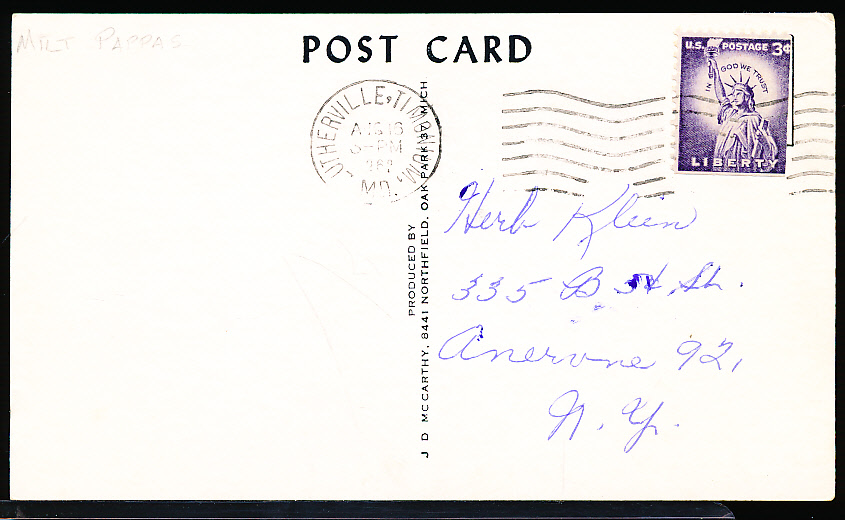 MILT PAPPAS
POST CARD
U.S. POSTAGE 3¢
IN GOD WE TRUST
LIBERTY
LUTHERVILLE-TIMONIUM,
AUG 16
PM
MD.
PRODUCED BY
J D MCCARTHY, 8441 NORTHFIELD, OAK PARK 37, MICH
Herb Klein
335 B
Anervone 92,
N.Y.